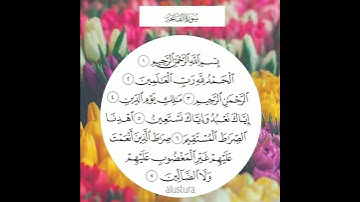 سُورَةُ الفَاتِحَةِ
بِسْمِ اللَّهِ الرَّحْمَٰنِ الرَّحِيمِ ١
الْحَمْدُ لِلَّهِ رَبِّ الْعَالَمِينَ ٢
الرَّحْمَٰنِ الرَّحِيمِ ٣ مَالِكِ يَوْمِ الدِّينِ ٤
إِيَّاكَ نَعْبُدُ وَإِيَّاكَ نَسْتَعِينُ ٥ اهْدِنَا
الصِّرَاطَ الْمُسْتَقِيمَ ٦ صِرَاطَ الَّذِينَ أَنْعَمْتَ
عَلَيْهِمْ غَيْرِ الْمَغْضُوبِ عَلَيْهِمْ
وَلَا الضَّالِّينَ ٧
alustura